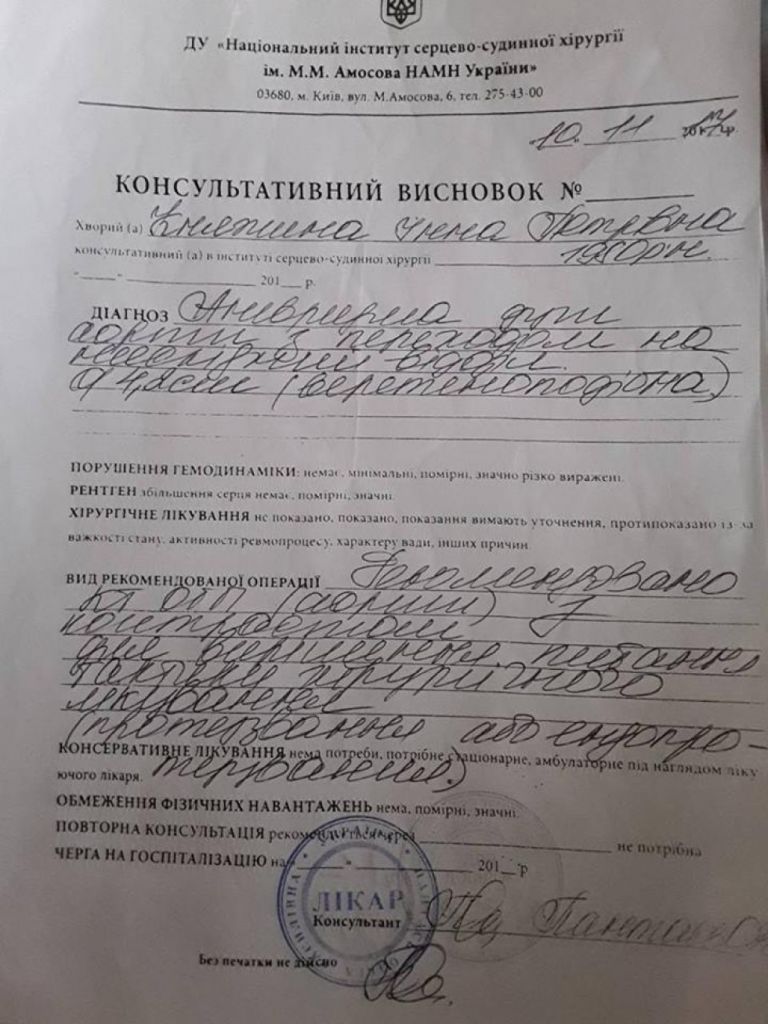 ДУ «Національний інститут серцево-судинної хірургії
ім. М.М. Амосова НАМН України»
03680, м. Київ, вул. М.Амосова, 6, тел. 275-43-00
10. 11 2017р.
КОНСУЛЬТАТИВНИЙ ВИСНОВОК №
Хворий (а) Княжина Інна Петрівна
консультативний (а) в інституті серцево-судинної хірургії 1960рн.
"___" ___ 201__ р.
ДІАГНОЗ Аневризма дуги
аорти з переходом на
низхідний відділ.
d 4,2см (веретеноподібна)
ПОРУШЕННЯ ГЕМОДИНАМІКИ: немає, мінімальні, помірні, значно різко виражені.
РЕНТГЕН збільшення серця немає, помірні, значні.
ХІРУРГІЧНЕ ЛІКУВАННЯ не показано, показано, показання вимають уточнення, протипоказано із-за
важкості стану, активності ревмопроцесу, характеру вади, інших причин.
ВИД РЕКОМЕНДОВАНОЇ ОПЕРАЦІЇ Рекомендовано
КТ ОГП (аорти) з
контрастом
для вирішення питання
тактики хірургічного
лікування
(протезування або ендопро-
КОНСЕРВАТИВНЕ ЛІКУВАННЯ нема потреби, потрібне стаціонарне, амбулаторне під наглядом ліку
ючого лікаря. тезування.)
ОБМЕЖЕННЯ ФІЗИЧНИХ НАВАНТАЖЕНЬ нема, помірні, значні.
ПОВТОРНА КОНСУЛЬТАЦІЯ рекомендується через ___ не потрібна
ЧЕРГА НА ГОСПІТАЛІЗАЦІЮ на "___" ___ 201__р
ЛІКАР
Консультант
Без печатки не дійсно